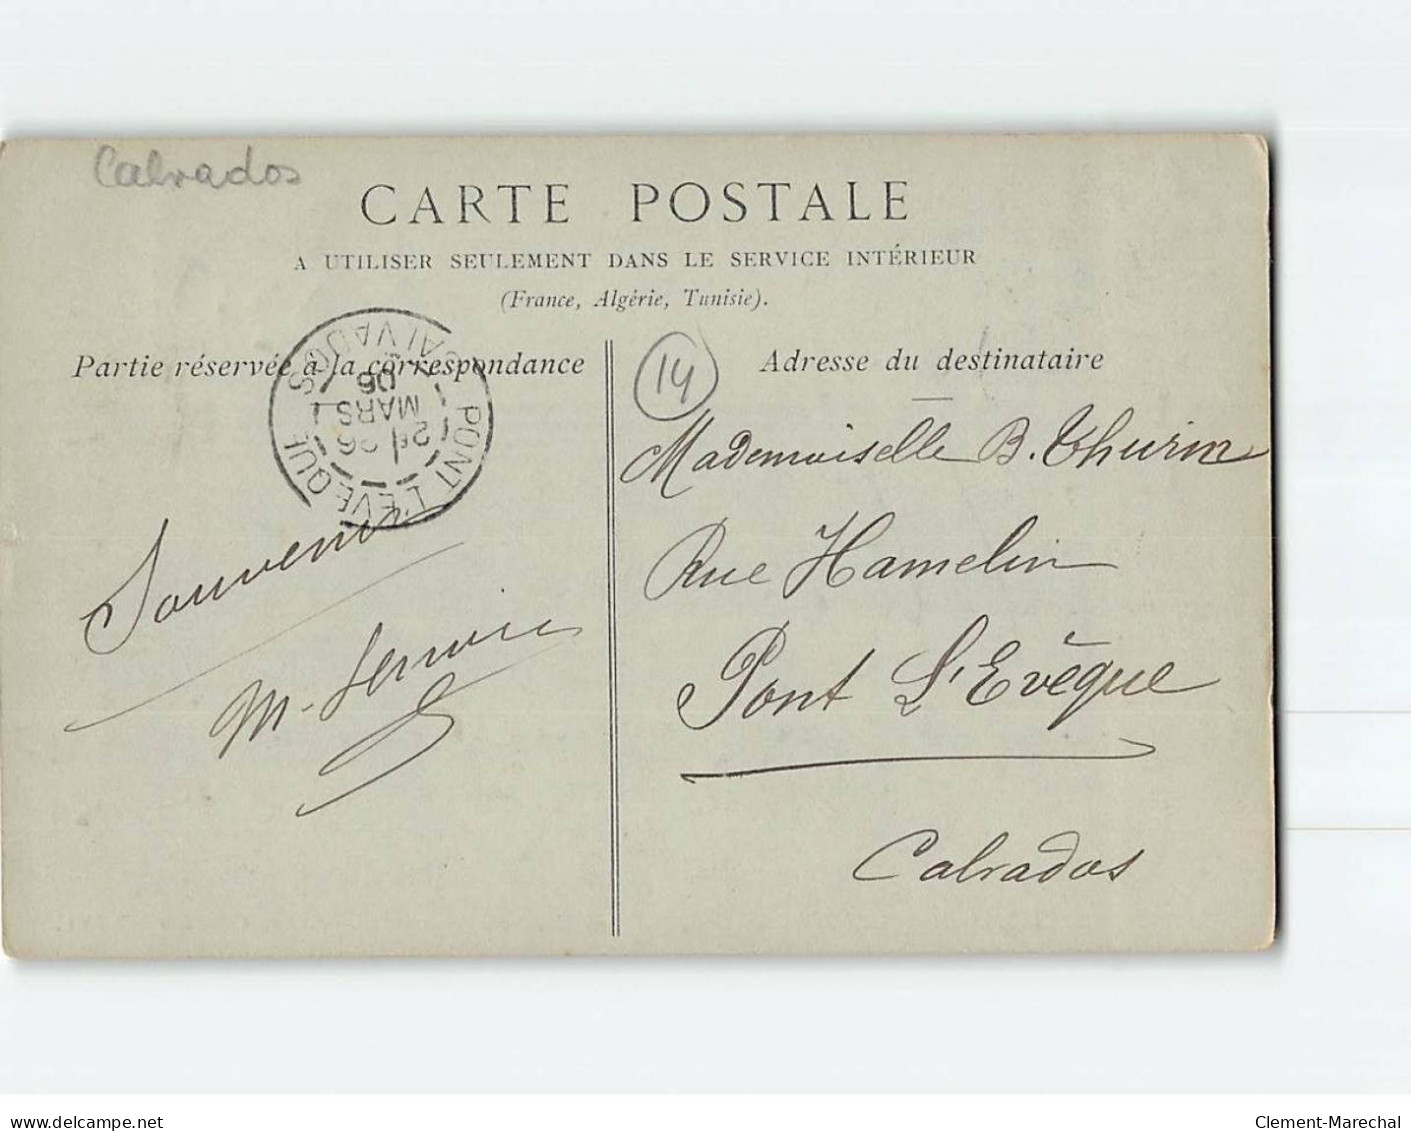 Calvados
CARTE POSTALE
A UTILISER SEULEMENT DANS LE SERVICE INTÉRIEUR
(France, Algérie, Tunisie).
Partie réservée à la correspondance
PONT L'EVEQUE
CALVADOS
26
MARS
06
Souvenir
M.
14
Adresse du destinataire
Mademoiselle B. Thurin
Rue Hamelin
Pont L'Evêque
Calvados
www.delcampe.net
Clement-Marechal